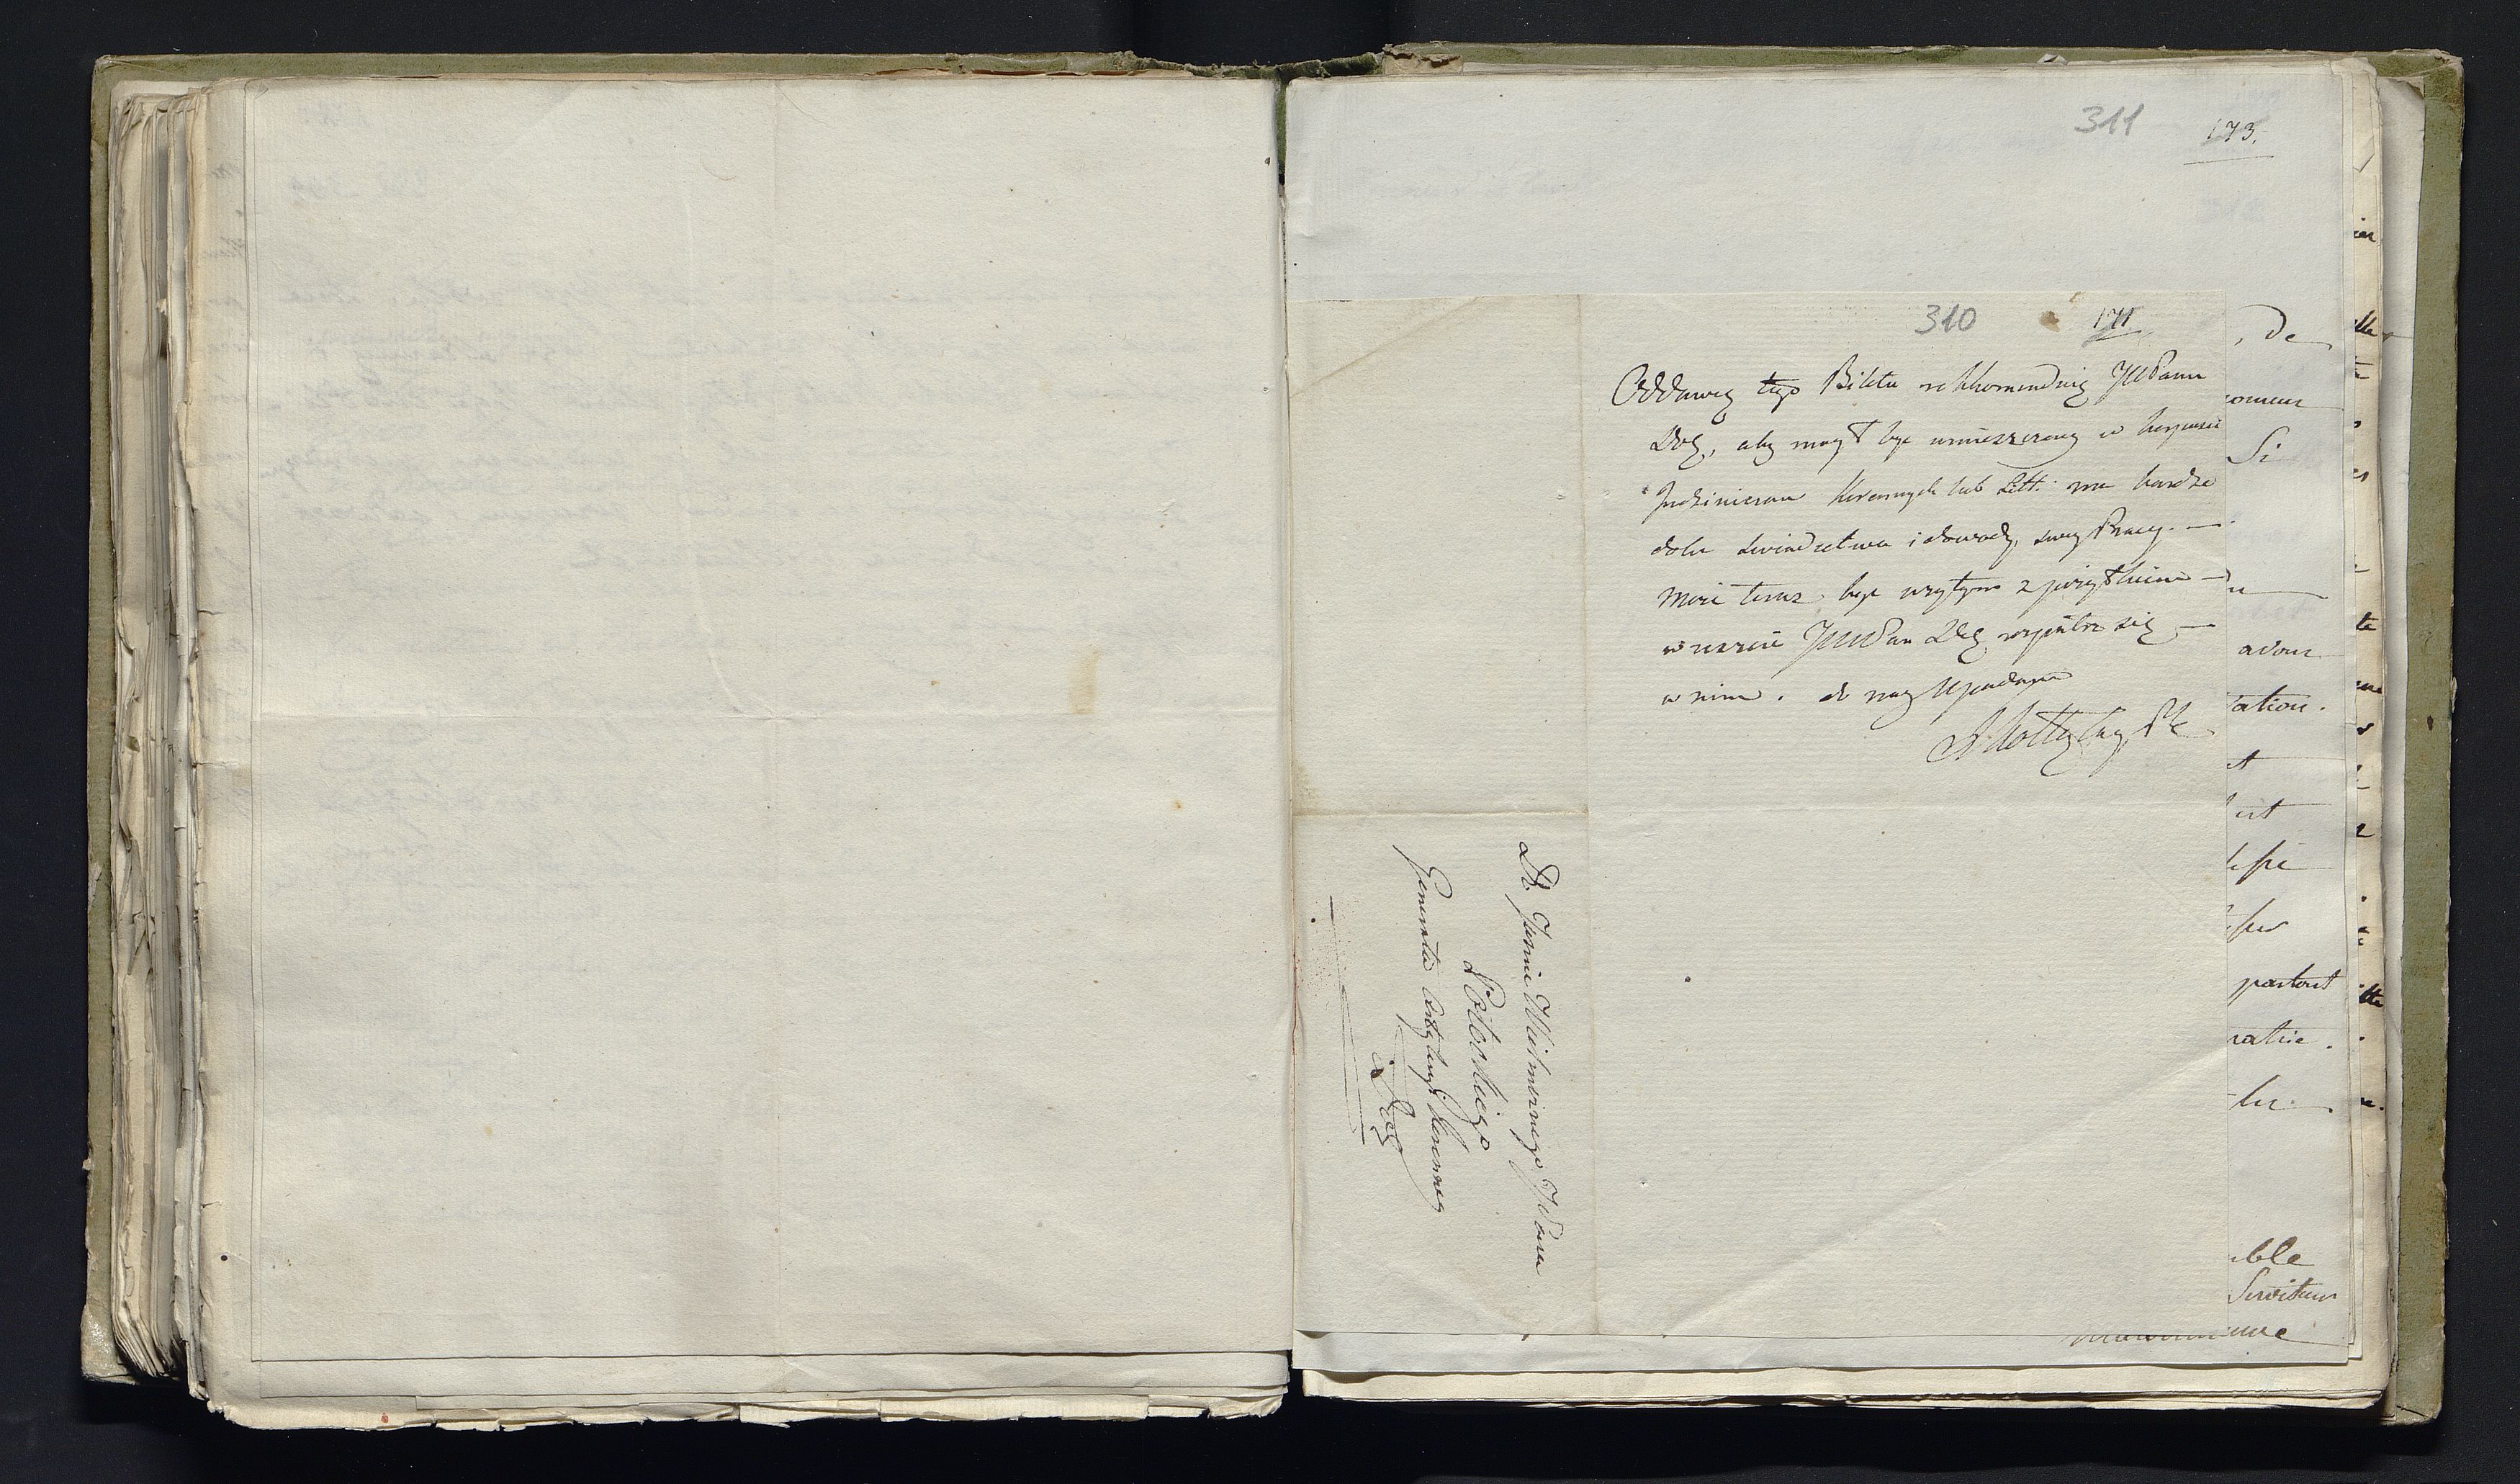 311
173.
310
171
Oddawcę tego Biletu rekkomenduię JWPanu
Dob, aby mógł być umieszczony w korpusie
Inżinierów Koronnych lub Litt: ma bardzo
dobre świadectwa i dowody, swey Pracy. —
może teraz być użytym z pożytkiem —
wreszcie JWWPan Dob, rozpatrz się —
w nim. do nog Upadam
Do Jaśnie Wielmożnego JPana
Potockiego
Generała Artyleryi Koronney
, de
onneur
Si
avour
ation.
et
est
esse
partout
ratie.
ble
Serviteur